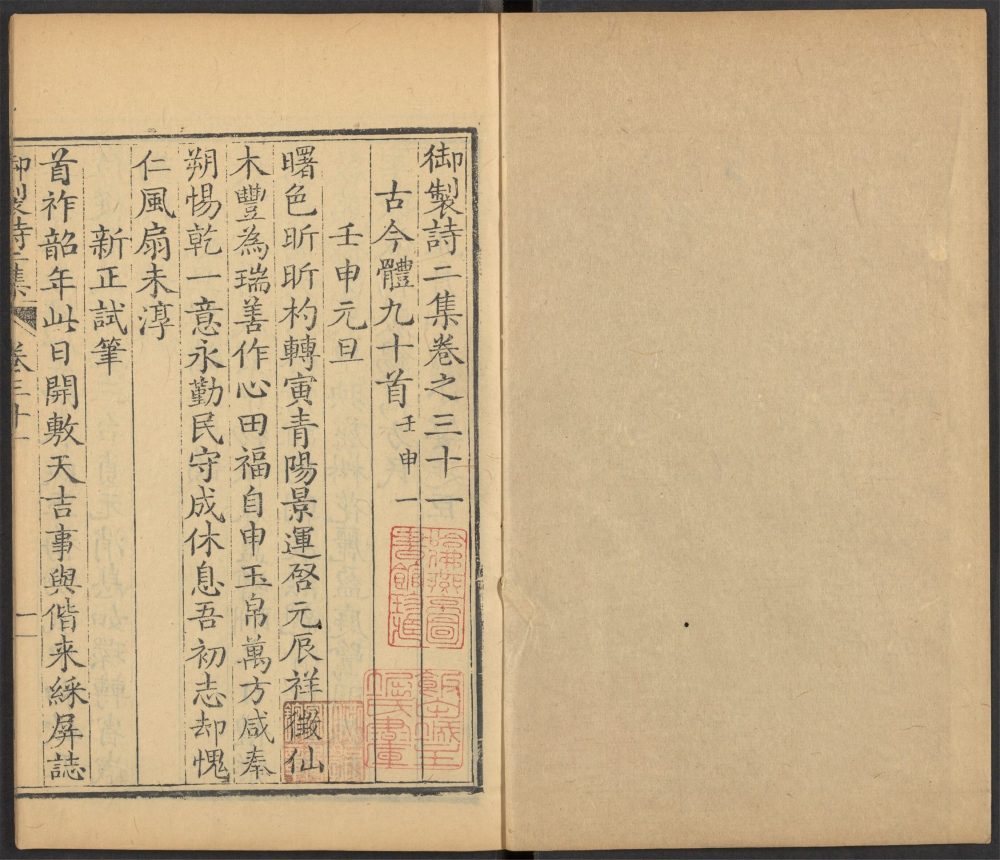 御製詩二集卷之三十一
古今體九十首壬申一
壬申元旦
曙色昕昕杓轉寅青陽景運啓元辰祥徵仙
木豐為瑞善作心田福自申玉帛萬方咸奉
朔惕乾一意永勤民守成休息吾初志却愧
仁風扇未淳
新正試筆
首祚韶年此日開敷天吉事與偕来綵屏誌
御製詩二集 卷三十一 一
哈佛燕京圖書館珍藏